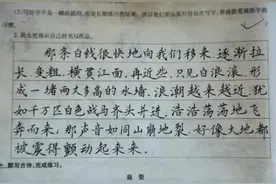 2.我也要展示自己的书写作品。
那条白线很快地向我们移来，逐渐拉
长，变粗，横贯江面。再近些，只见白浪滚滚，形
成一堵两丈多高的水墙。浪潮越来越近，犹
如千万匹白色战马齐头并进，浩浩荡荡地飞
奔而来；那声音如同山崩地裂，好像大地都
被震得颤动起来。
七、默写古诗，完成练习。